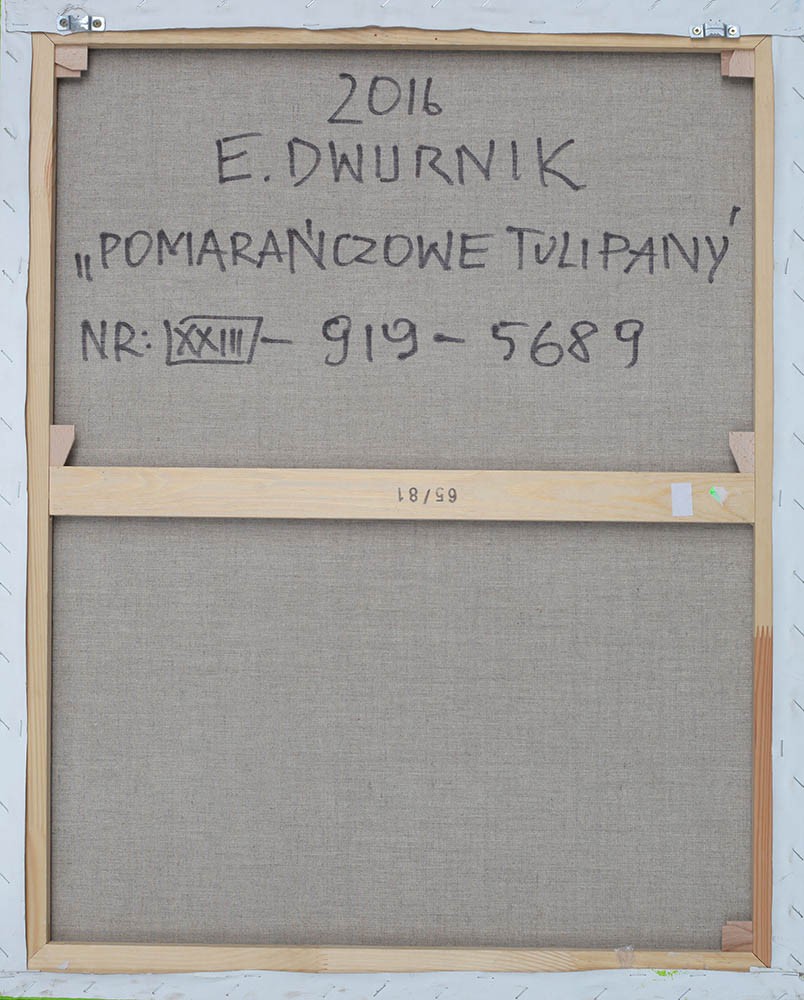 2016
E. DWURNIK
„POMARAŃCZOWE TULIPANY'
NR: XXIII - 919 - 5689
65/81